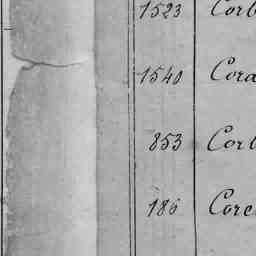 1523 Corb
1540 Cora
853 Corb
186 Corc